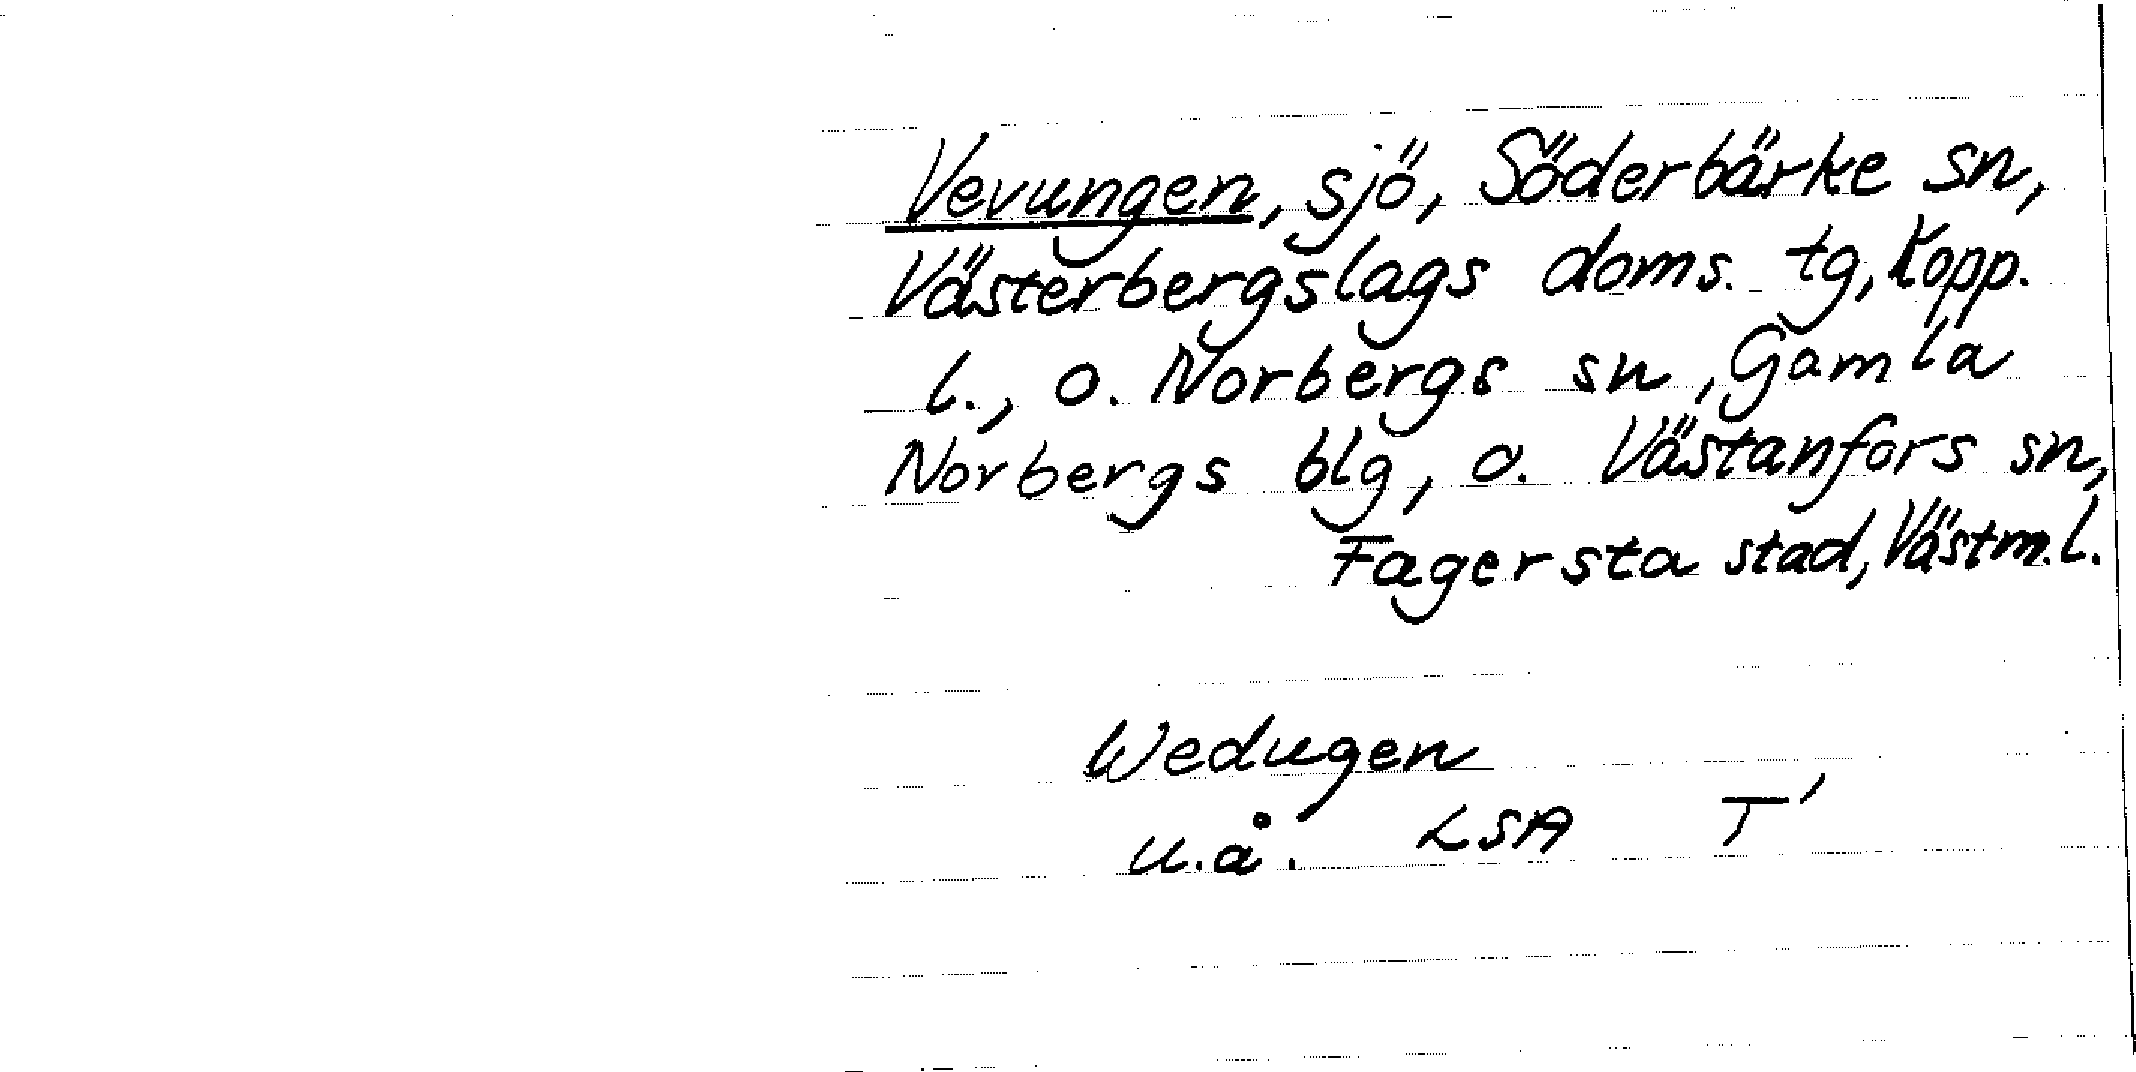 Vevungen, sjö, Söderbärke sn,
Västerbergslags doms. tg, Kopp.
l., o. Norbergs sn, Gamla
Norbergs blg, o. Västanfors sn,
Fagersta stad, Västm. l.
Wedugen
u.å. LSA T'